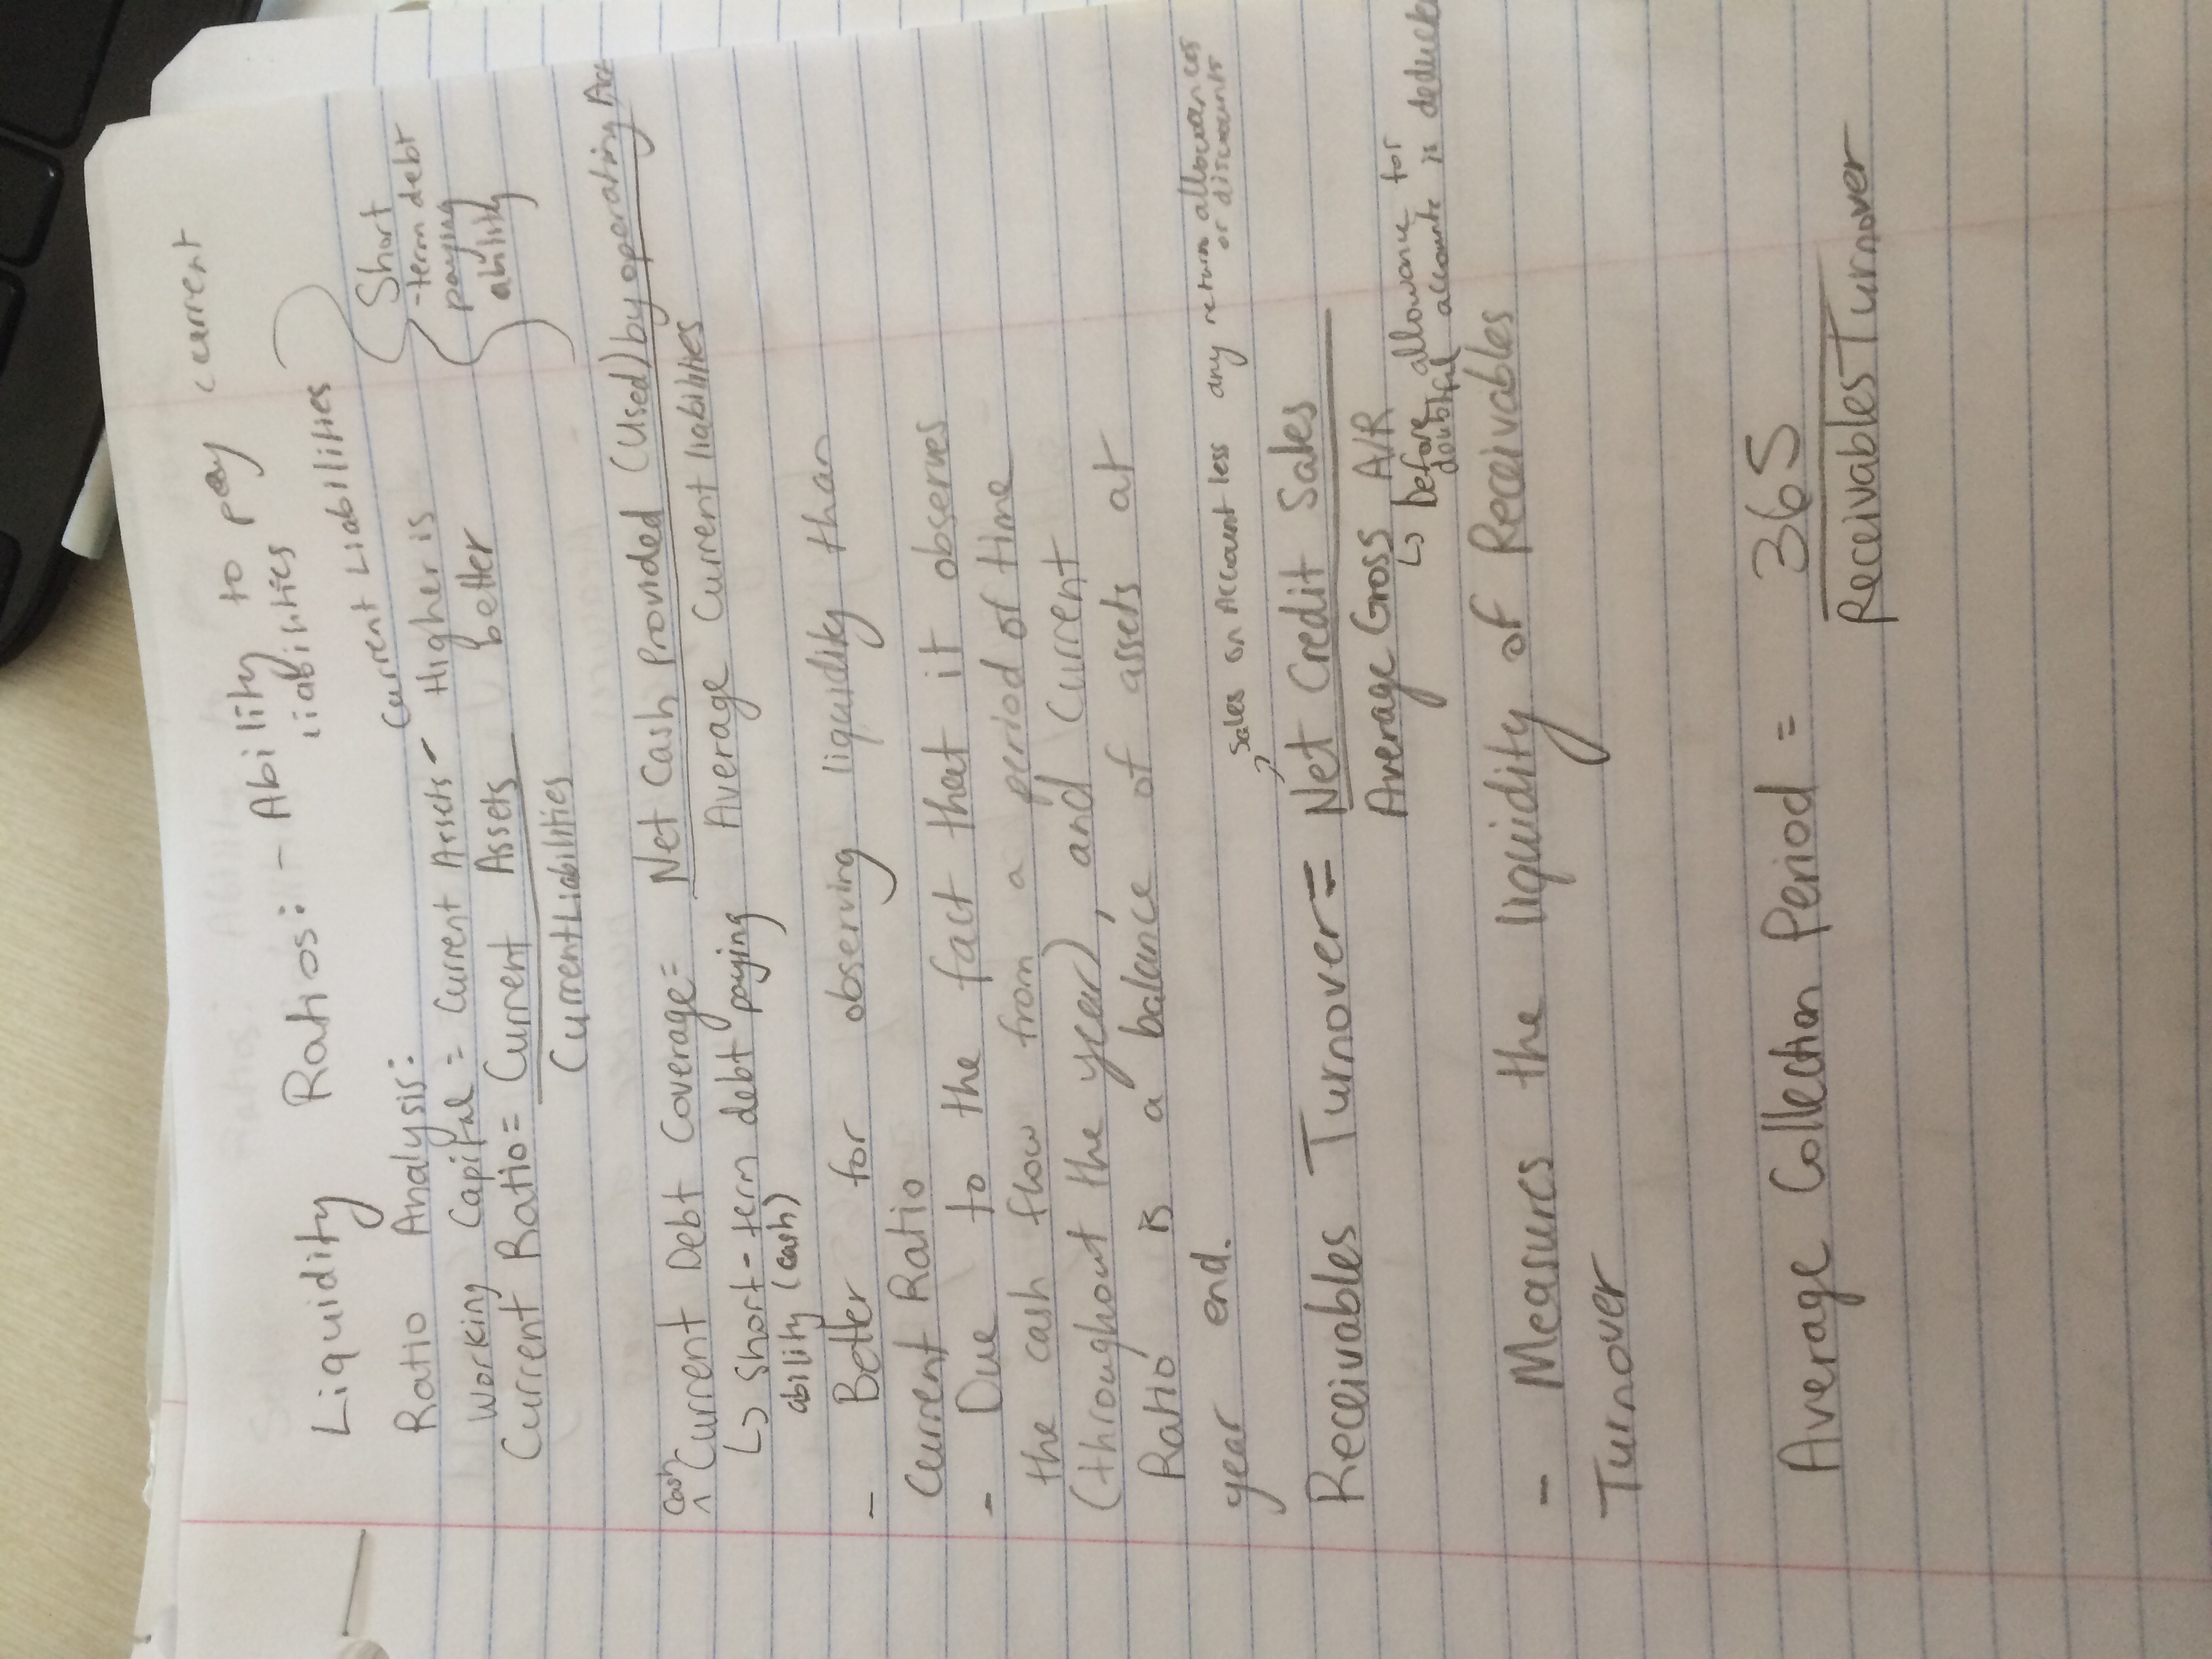 Liquidity Ratios: - Ability to pay current
liabilities
Ratio Analysis:
Working Capital = Current Assets - Current Liabilities
Current Ratio = Current Assets
Current Liabilities
Higher is
better
Short
-term debt
paying
ability
Cash
^ Current Debt Coverage = Net Cash Provided (Used) by operating Act
Average Current liabilities
↳ Short-term debt paying
ability (cash)
- Better for observing liquidity than
Current Ratio
- Due to the fact that it observes
the cash flow from a period of time
(throughout the year), and Current
Ratio is a balance of assets at
year end.
Sales on Account less any return allowances
or discounts
Receivables Turnover = Net Credit Sales
Average Gross A/R
↳ before allowance for
doubtful accounts is deducte
- Measures the liquidity of Receivables
Turnover
Average Collection Period = 365
Receivables Turnover